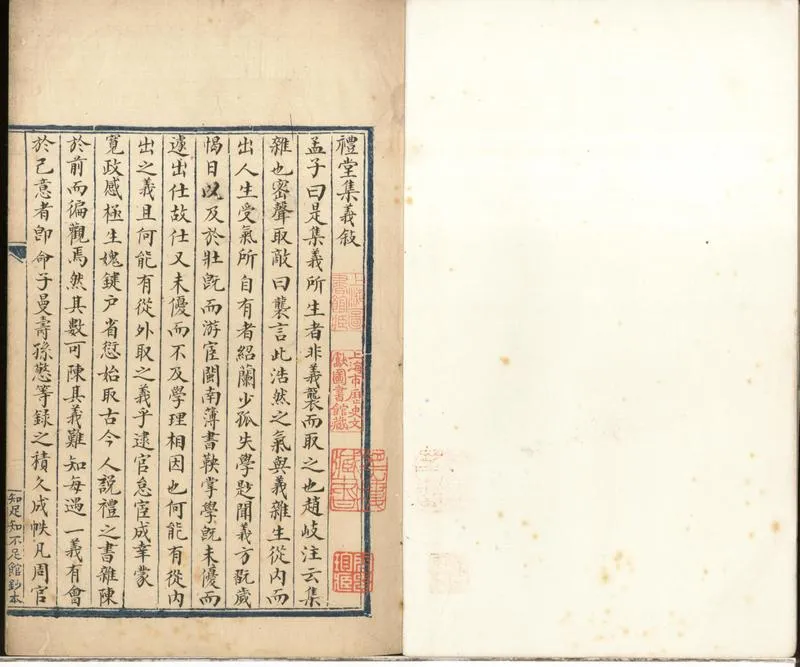 禮堂集義敘
孟子曰是集義所生者非義襲而取之也趙岐注云集
雜也密聲取敵曰襲言此浩然之氣與義雜生從內而
出人生受氣所自有者紹蘭少孤失學尟聞義方翫歲
愒日以及於壯旣而游宦閩南薄書鞅掌學旣未優而
遽出仕故仕又未優而不及學理相因也何能有從內
出之義且何能有從外取之義乎逮官怠宦成幸蒙
寬政感極生媿鍵戶省愆始取古今人說禮之書雜陳
於前而徧觀焉然其數可陳其義難知每遇一義有會
於己意者卽命子曼壽孫憼等錄之積久成帙凡周官
知足知不足館鈔本
上海圖書館藏
上海市歷史文獻圖書館藏